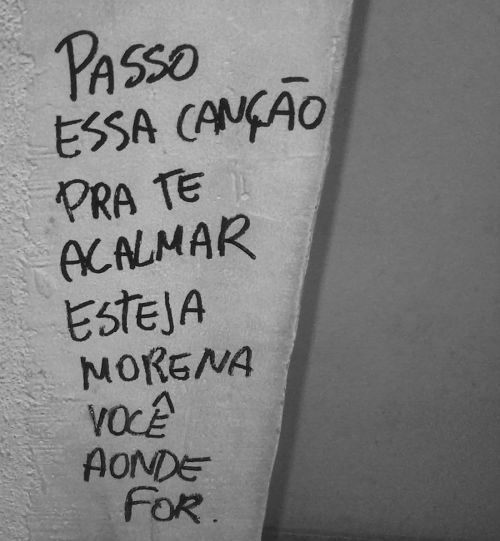 PASSO
ESSA CANÇÃO
PRA TE
ACALMAR
ESTEJA
MORENA
VOCÊ
AONDE
FOR.